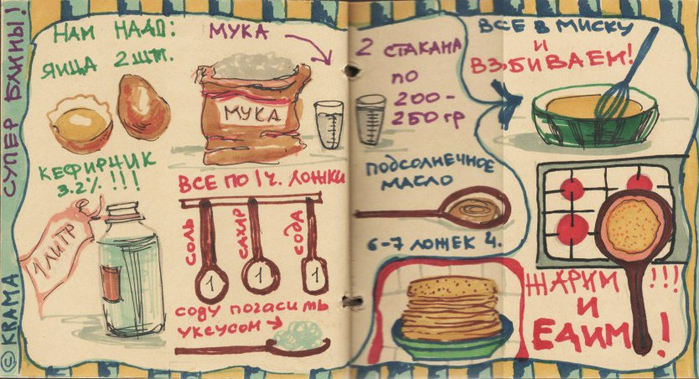 СУПЕР БЛИНЫ!
© KRAMA
НАМ НАДО:
ЯИЦА 2ШТ.
КЕФИРЧИК
3.2% !!!
1 ЛИТР
МУКА
МУКА
ВСЕ ПО 1 Ч. ЛОЖКИ
СОЛЬ
САХАР
СОДА
1
1
1
СОДУ ПОГАСИТЬ
УКСУСОМ
2 СТАКАНА
ПО
200-
250 ГР
ПОДСОЛНЕЧНОЕ
МАСЛО
6-7 ЛОЖЕК Ч.
ВСЕ В МИСКУ
И
ВЗБИВАЕМ!
ЖАРИМ !!!
И
ЕДИМ!